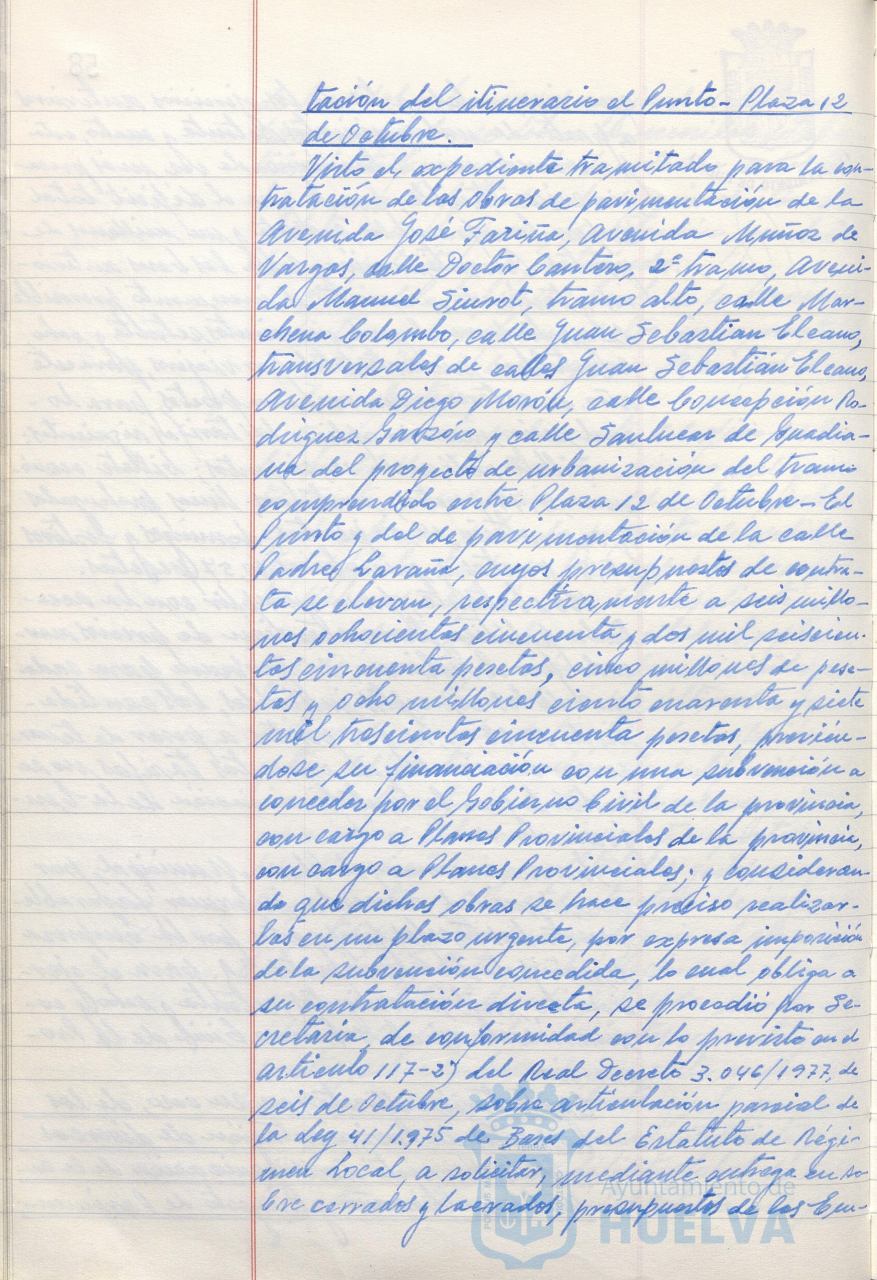 tación del itinerario el Punto - Plaza 12
de Octubre.
Visto el expediente tramitado para la con-
tratación de las obras de pavimentación de la
Avenida José Fariña, Avenida Muñoz de
Vargas, calle Doctor Cantero, 2º tramo, Aveni-
da Manuel Siurot, tramo alto, calle Mar-
chena Colombo, calle Juan Sebastian Elcano,
transversales de calles Juan Sebastián Elcano,
Avenida Diego Morón, calle Concepción Ro-
driguez Garzón y calle Sanlucar de Guadia-
na del proyecto de urbanización del tramo
comprendido entre Plaza 12 de Octubre - El
Punto y del de pavimentación de la calle
Padre Laraña, cuyos presupuestos de contra-
ta se elevan, respectivamente a seis millo-
nes ochocientas cincuenta y dos mil seiscien-
tas cincuenta pesetas, cinco millones de pese-
tas y ocho millones ciento cuarenta y siete
mil trescientas cincuenta pesetas, previén-
dose su financiación con una subvención a
conceder por el Gobierno Civil de la provincia,
con cargo a Planes Provinciales de la provincia,
con cargo a Planes Provinciales; y consideran-
do que dichas obras se hace preciso realizar-
las en un plazo urgente, por expresa imposición
de la subvención concedida, lo cual obliga a
su contratación directa, se procedió por Se-
cretaría, de conformidad con lo previsto en el
articulo 117-2) del Real Decreto 3.046/1977, de
seis de Octubre, sobre articulación parcial de
la Ley 41/1.975 de Bases del Estatuto de Régi-
men Local, a solicitar, mediante entrega en so-
bre cerrados y lacrados, presupuestos de las Em-
Ayuntamiento de
HUELVA